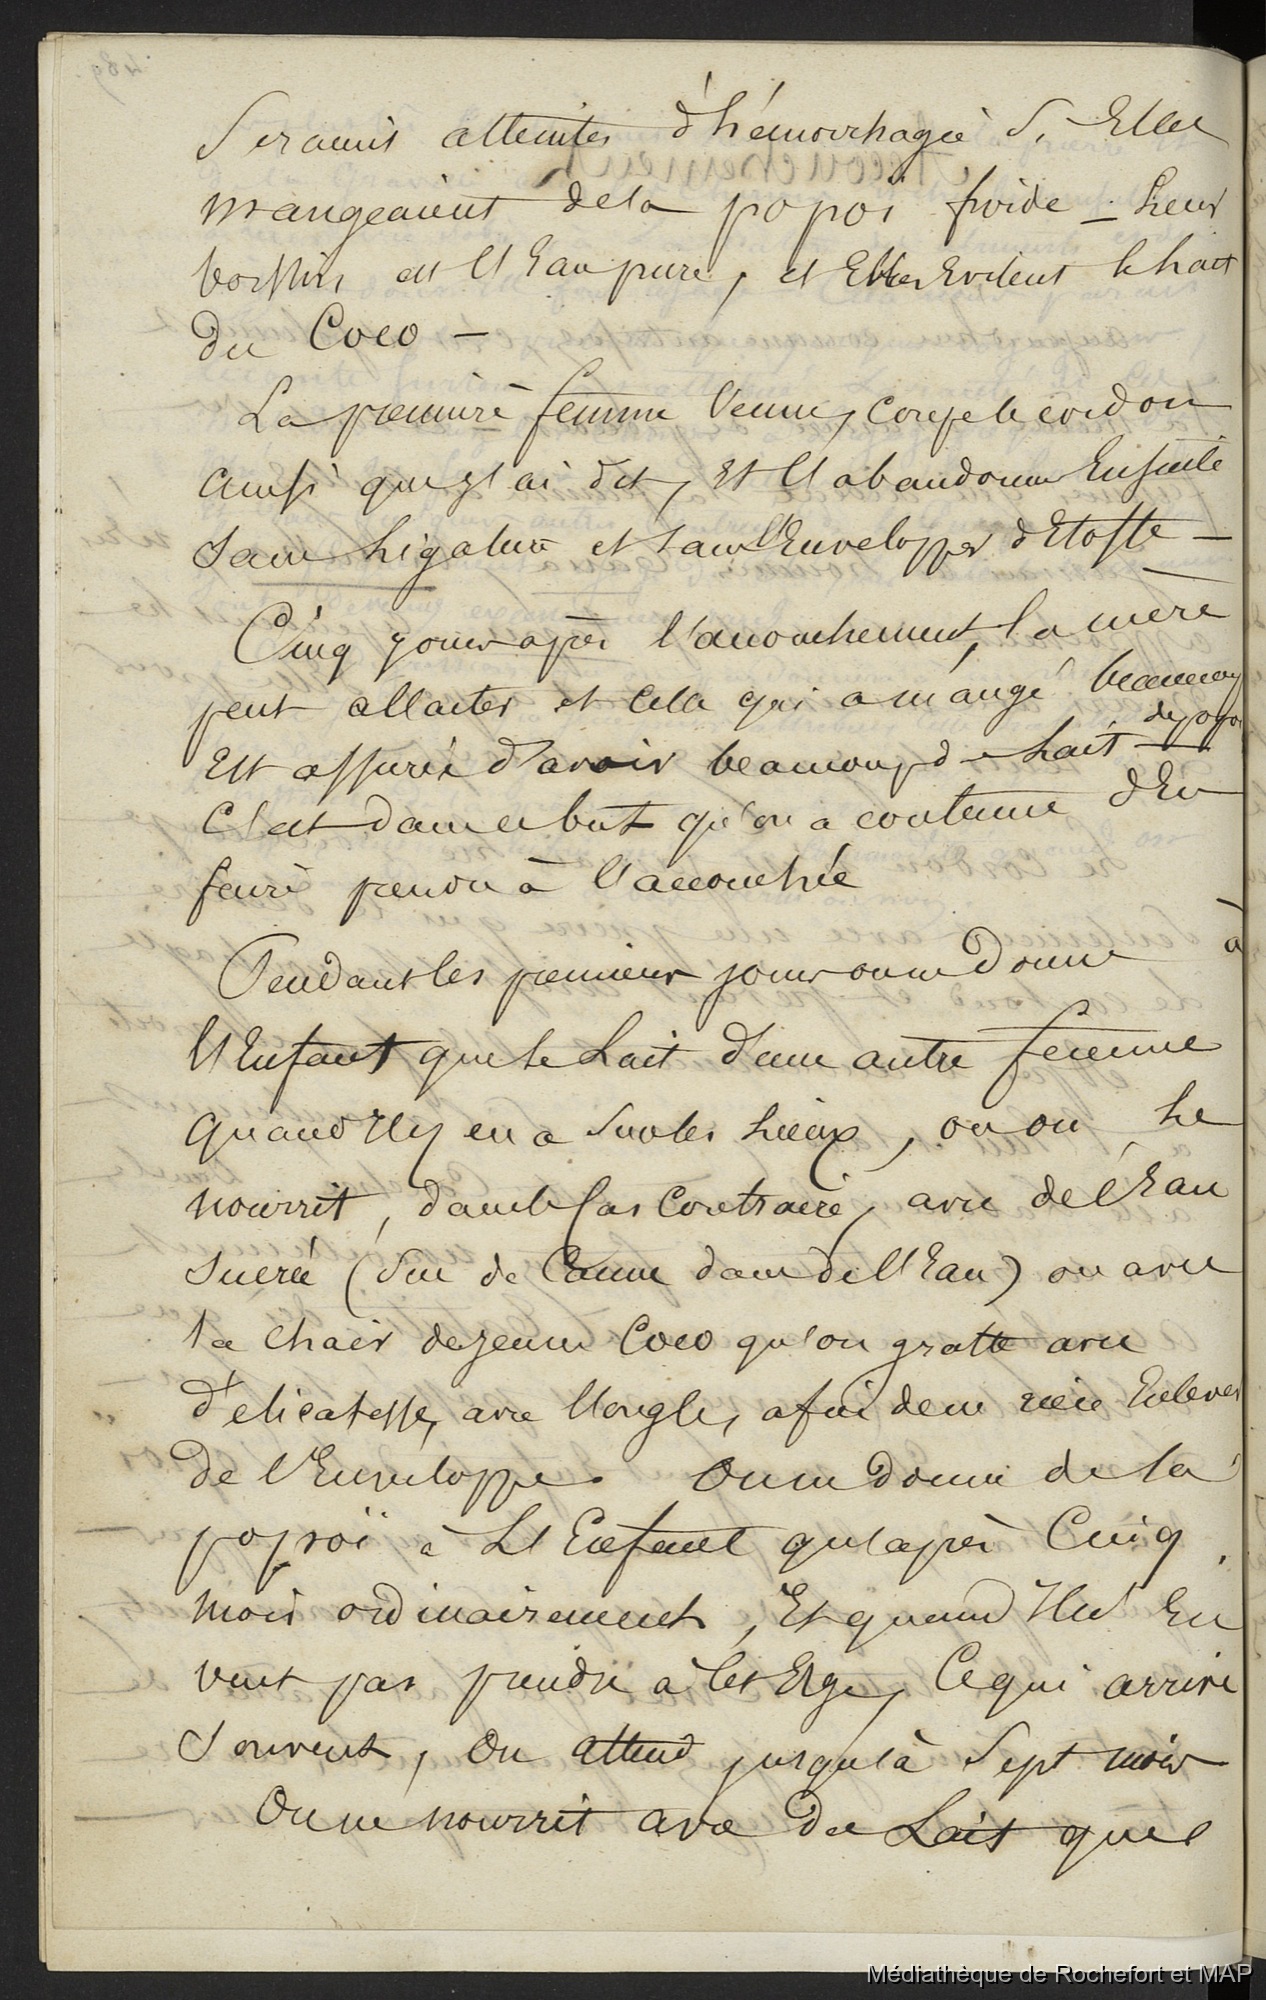 Seraient atteintes d'hémorrhagie Si Elles
mangeaient de la popoi froide – Leur
boisson est l'Eau pure, et Elles Evitent le Lait
du Coco –
La première femme Venue, coupe le cordon
ainsi que j'ai dit, Et l'abandonne Ensuite
Sans Ligature et sans l'Envelopper d'Etoffe –
Cinq jours après l'accouchement, la mère
peut allaiter et celle qui a mangé beaucoup
de popoi
Est assurée d'avoir beaucoup de Lait –
C'est dans ce but qu'on a coutume d'En
faire prendre à l'accouchée
Pendant les premiers jours on ne Donne à
l'Enfant que le Lait d'une autre femme
quand Il y en a Sur les Lieux, ou on Le
nourrit, dans le Cas Contraire, avec de l'Eau
Sucrée (Suc de Canne dans de l'Eau) ou avec
la Chair de jeune Coco qu'on gratte avec
délicatesse, avec l'ongle, afin de ne rien Enlever
de l'Enveloppe. On ne donne de la
popoi à L'Enfant qu'après Cinq
mois ordinairement, Et quand Il n'En
veut pas prendre à cet Age, Ce qui arrive
Souvent, On attend jusqu'à Sept mois
On ne nourrit avec du Lait que
Médiathèque de Rochefort et MAP